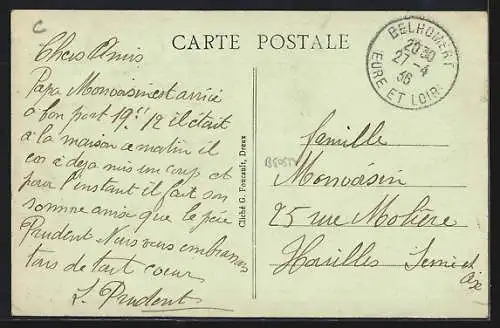 C
CARTE POSTALE
BELHOMERT
20 30
27-4
36
EURE ET LOIR
Chers Amis
Papa Monvoisin est arrivé
à bon port 19h 12 il était
à la maison ce matin il
en a déja mis un coup et
pour l'instant il fait son
somme ainsi que le pée
Prudent Nous vous embrassons
tous de tout coeur
L. Prudent
Cliché G. Foucault, Dreux
famille
Monvoisin
25 rue Molière
Houilles Seine et
Oise